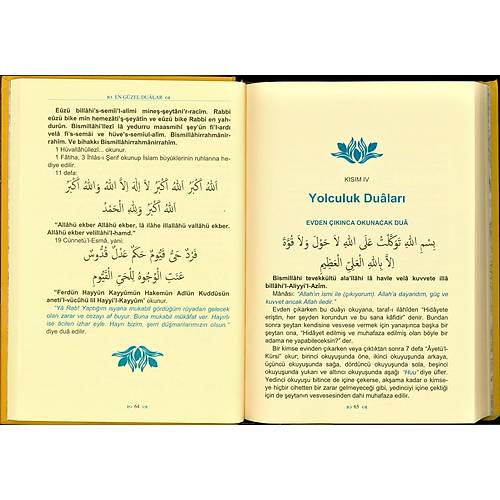 EN GÜZEL DUÂLAR
Eûzü billâhi's-semîi'l-alîmi mineş-şeytâni'r-racîm. Rabbi
eûzü bike min hemezâti'ş-şeyatîn ve eûzü bike Rabbi en yah-
durûn. Bismillâhi'llezî lâ yedurru maasmihî şey'ün fi'l-ardı
velâ fi's-semâi ve hüve's-semîul-alîm. Bismillâhirrahmânirrahîm.
Ve bihakkı Bismillâhirrahmânirrahîm.
1 Hüvallâhüllezî... okunur.
1 Fâtiha, 3 İhlâs-ı Şerif okunup İslam büyüklerinin ruhlarına he-
diye edilir.
11 defa:
اَللهُ اَكْبَرُ اَللهُ اَكْبَرُ لَا اِلٰهَ اِلَّا اللهُ وَاللهُ اَكْبَرُ
اَللهُ اَكْبَرُ وَلِلّٰهِ الْحَمْدُ
"Allâhü ekber Allâhü ekber, lâ ilâhe illallâhü vallâhü ekber.
Allâhü ekber velillâhi'l-hamd."
19 Cünnetü'l-Esmâ, yani:
فَرْدٌ حَيٌّ قَيُّومٌ حَكَمٌ عَدْلٌ قُدُّوسٌ
عَنَتِ الْوُجُوهُ لِلْحَيِّ الْقَيُّومِ
"Ferdün Hayyün Kayyûmün Hakemün Adlün Kuddûsün
aneti'l-vücûhü lil Hayyi'l-Kayyûm" okunur.
"Yâ Rab! Yaptığım isyana mukabil gördüğüm rüyadan gelecek
olan zarar ve cezayı af buyur. Buna mukabil mükâfat ver. Hayırlı
ise âcilen izhar eyle. Hayrı bizim, şerri düşmanlarımızın olsun."
diye duâ edilir.
64
KISIM IV
Yolculuk Duâları
EVDEN ÇIKINCA OKUNACAK DUÂ
بِسْمِ اللهِ تَوَكَّلْتُ عَلَى اللهِ لَا حَوْلَ وَلَا قُوَّةَ
اِلَّا بِاللهِ الْعَلِيِّ الْعَظِيمِ
Bismillâhi tevekkeltü alallâhi lâ havle velâ kuvvete illâ
billâhi'l-Aliyyi'l-Azîm.
Mânâsı: "Allah'ın ismi ile (çıkıyorum). Allah'a dayandım, güç ve
kuvvet ancak Allah iledir."
Evden çıkarken bu duâyı okuyana, taraf-ı ilâhîden "Hidâyete
eriştin, her şeyden korundun ve bu sana kâfidir" denir. Bundan
sonra şeytan kendisine vesvese vermek için yanaşınca başka bir
şeytan ona, "Hidâyet edilmiş ve muhafaza edilmiş olan böyle bir
adama ne yapabileceksin?" der.
Bir kimse evinden çıkarken veya çıktıktan sonra 7 defa "Âyetü'l-
Kürsî" okur; birinci okuyuşunda öne, ikinci okuyuşunda arkaya,
üçüncü okuyuşunda sağa, dördüncü okuyuşunda sola, beşinci
okuyuşunda yukarı ve altıncı okuyuşunda aşağıya "Huu" diye üfler.
Yedinci okuyuşu bitince de içine çekerse, akşama kadar o kimse-
ye hiçbir cihetten bir zarar gelmeyeceği gibi, yedinciyi içine çektiği
için de şeytanın vesvesesinden dahi muhafaza edilir.
65